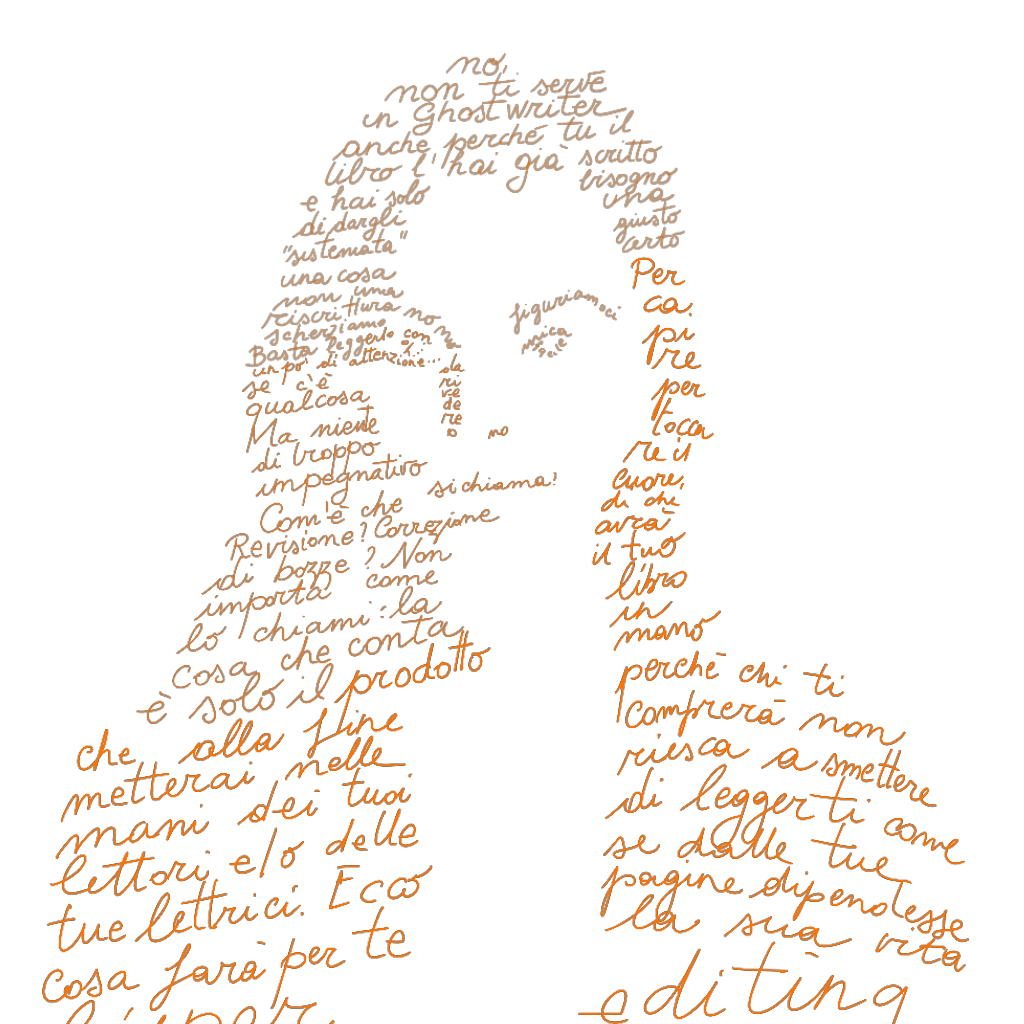 no,
non ti serve
un Ghostwriter
anche perché tu il
libro l'hai già scritto
e hai solo bisogno
di dargli una
"sistemata" giusto
una cosa certo
non una
riscrittura no no
scherziamo
figuriamoci
Basta leggerlo con
un po' di attenzione...
unica
specie
se c'è
qualcosa
da
ri
ve
de
re
o no
Ma niente
di troppo
impegnativo
si chiama?
Com'è che
Revisione? Correzione
di bozze? Non
importa come
lo chiami: la
cosa che conta
è solo il prodotto
che alla fine
metterai nelle
mani dei tuoi
lettori e/o delle
tue lettrici. Ecco
cosa farà per te
l'iper
Per
ca.
pi
re
per
tocca
re il
cuore,
di chi
avrà
il tuo
libro
in
mano
perché chi ti
comprerà non
riesca a smettere
di leggerti come
se dalle tue
pagine dipendesse
la sua vita
editing